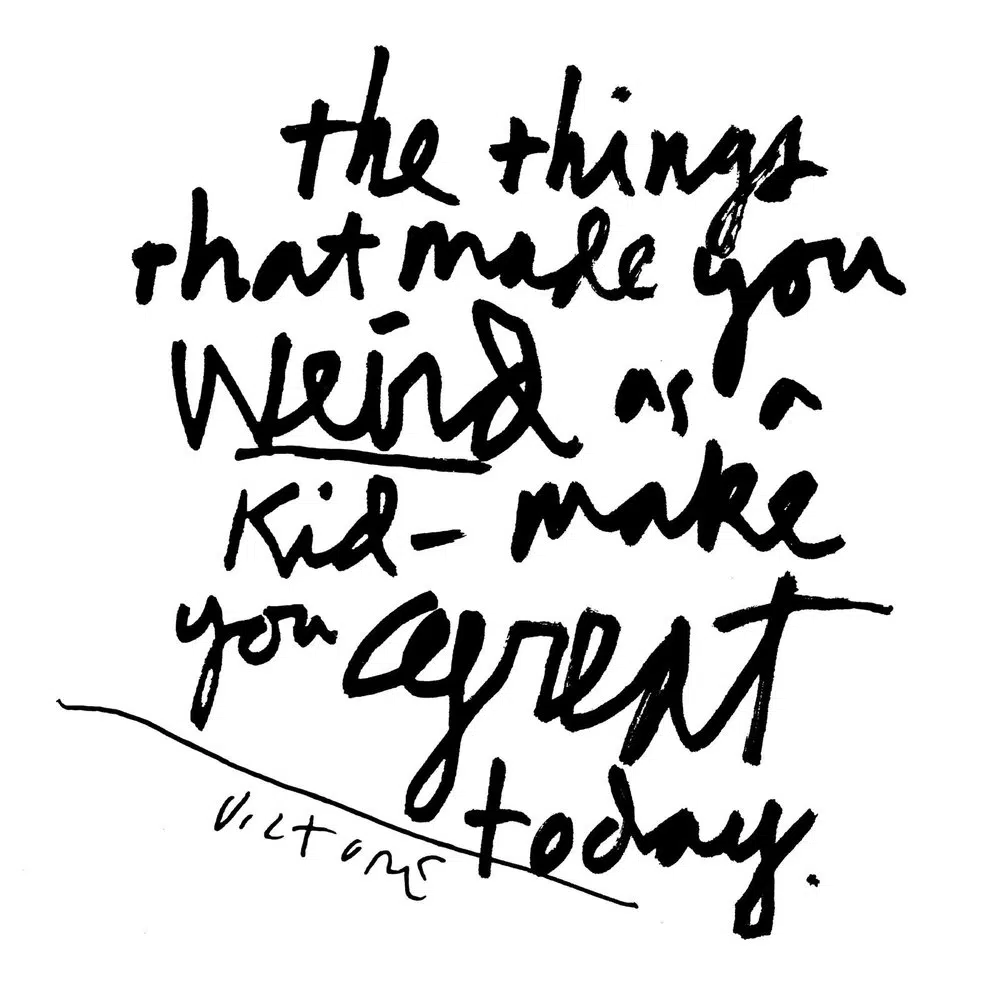 the things
that made you
Weird as a
Kid- make
you great
today.
Victore